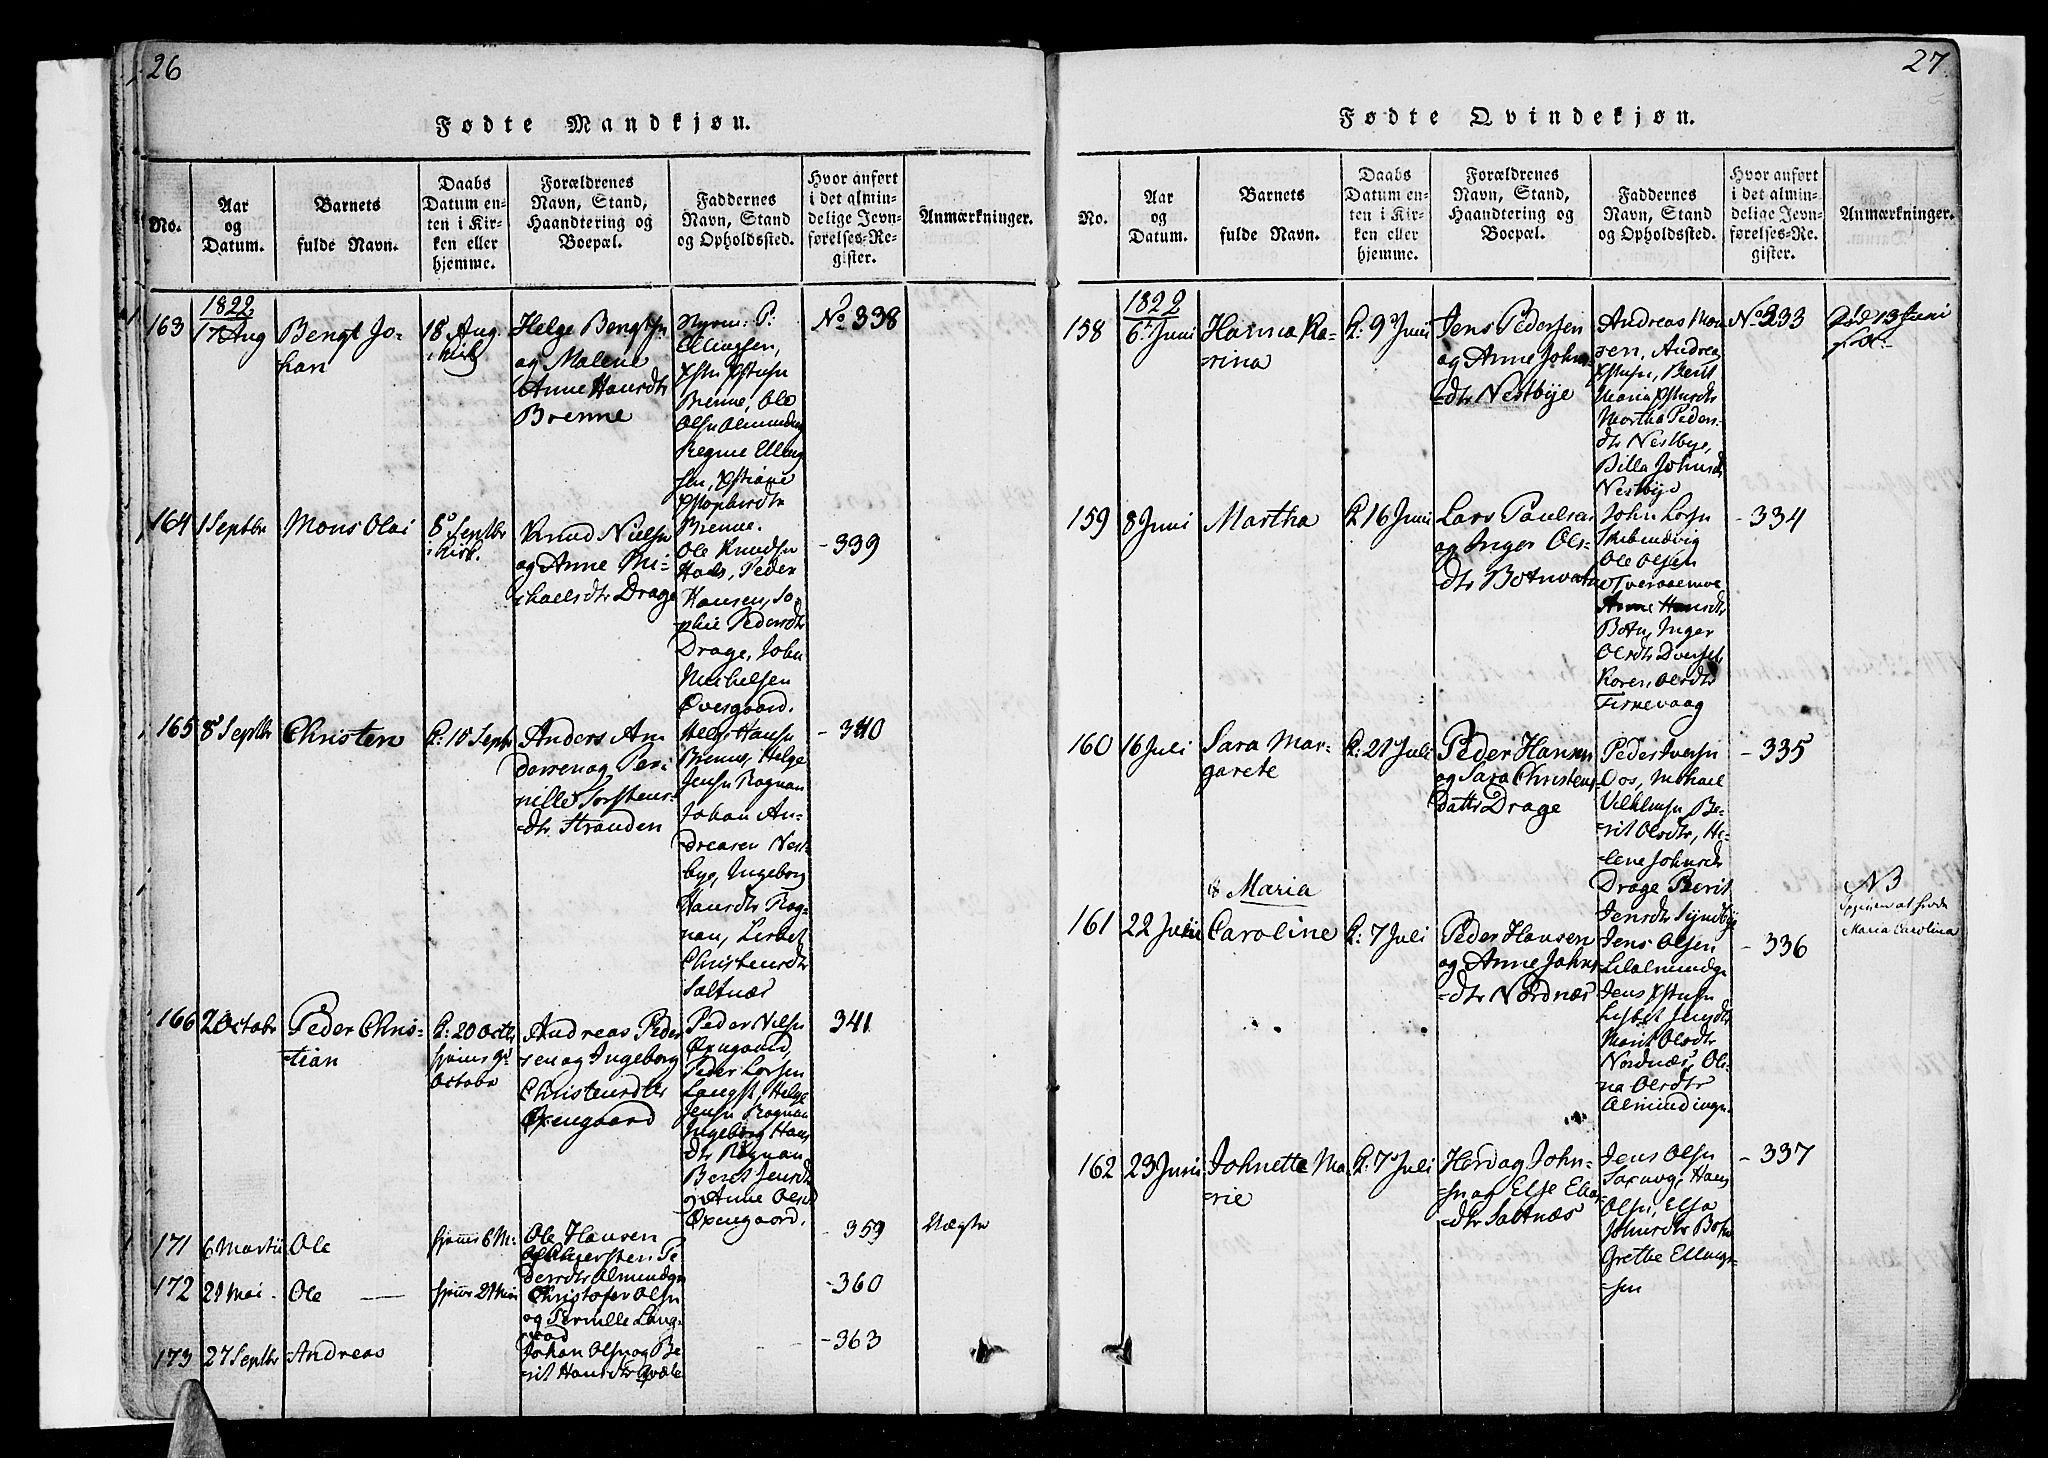 26
Fødte Mandkjøn.
No.
Aar
og
Datum.
Barnets
fulde Navn.
Daabs
Datum en-
ten i Kir-
ken eller
hjemme.
Forældrenes
Navn, Stand,
Haandtering og
Boepæl.
Faddernes
Navn, Stand
og Opholdssted.
Hvor anført
i det almin-
delige Jevn-
førelses-Re-
gister.
Anmærkninger.
163
1822
17 Aug
Bengt Jo-
han
18 Aug.
i Kirk
Helge Bengtsn
og Malene
Anne Hansdtr
Brenne
P.
Ellingsen,
Brenne, Ole
Olsn
Regine Elling
sen,
Brenne.
No 338
164
1 Septbr
Mons Olai
8 Septbr
i Kirk.
Knud Nielsn
og Anne Mi-
chaelsdtr Drage
Ole Knudsn
Hals, Peder
Hansen, So-
phie Pedersdtr
Drage, John
Michelsen
Evesgaard.
- 339
165
8 Septbr
Christen
K: 15 Septbr
Anders An
dersen og Peri
nille Torstens-
dtr Stranden
Helge Hansn
Brenne, Helge
Jensn Rognan
Johan An-
dreasen Nest-
bye, Ingeborg
Hansdtr Rog-
nan, Lisbet
Christensdtr
Saltnæs
- 340
166
2 Octobr
Peder Chris-
tian
K: 20 Octbr
hjemme 9
Octobr
Andreas Peder
sen og Ingeborg
Christensdtr
Øxengaard
Peder Nilsn
Øxngaard,
Peder Larsen
Langst, Helge
Jensn Rognan
Ingeborg Hans
dtr Rognan
Berit Jensdt
og Anne Olsd
Øxengaard.
341
171
6 Martii
Ole
hjemme 6 M:
Ole Hansen
og Kjersten Pe
dersdtr Almindgn
- 359
Uægte
172
21 Mai
Ole
hjemme 21 Mai
Christofer Olsn
og Pernille Lang-
vad
- 360
173
27 Septbr
Andreas
Johan Olsn og Be
rit Hansdtr Qvæle
- 363
27
Fødte Qvindekjøn.
No.
Aar
og
Datum.
Barnets
fulde Navn.
Daabs
Datum en-
ten i Kir-
ken eller
hjemme.
Forældrenes
Navn, Stand,
Haandtering og
Boepæl.
Faddernes
Navn, Stand
og Opholdssted.
Hvor anført
i det almin-
delige Jevn-
førelses-Re-
gister.
Anmærkninger.
158
1822
6 Juni
Hanna Ka-
rina
K: 9 Juni
Jens Pedersen
og Anne Johns-
dtr Nestbye
Andreas Mon
sen, Andreas
Berit
Maria
Martha Peders-
dtr Nestbye,
Billa Johnsdt
Nestbye
No 333
død 13 Juni
159
8 Juni
Martha
K: 16 Juni
Lars Paulsen
og Inger Ols-
dtr Botnvatn
John Larsn
Skibmdvig
Ole Olsen
Tveraaemoe
Anne Hansdtr
Botn, Inger
Olsdtr Dverset
Karen Olsdtr
Finnevaag
- 334
160
16 Juli
Sara Mar-
garete
K: 21 Juli
Peder Hansen
og Sara Christens
datter Drage
Peder Iversn
Oos, Michael
Vilhelmsn, Be-
rit Olsdtr, He-
lene Johnsdtr
Drage Berit
Jensdtr Syndbye
- 335
161
22 Junii
Maria
Caroline
K: 7 Juli
Peder Hansen
og Anne Johns
dtr Nordnæs
Jens Olsen
Lilalmindgn
Jens
Lisbet Jensdtr
Marit Olsdtr
Nordnæs, Ole-
na Olsdtr
Almindingn.
- 336
NB
Maria Carolina
162
23 Juni
Johnetta Ma-
rie
K: 7 Juli
Herdag John-
sn og Else Elias-
dtr Saltnæs
Jens Olsn
Saxavg, Hans
Olsn, Elsa
Johnsdtr Botn
Grethe Ellings-
sen
- 337